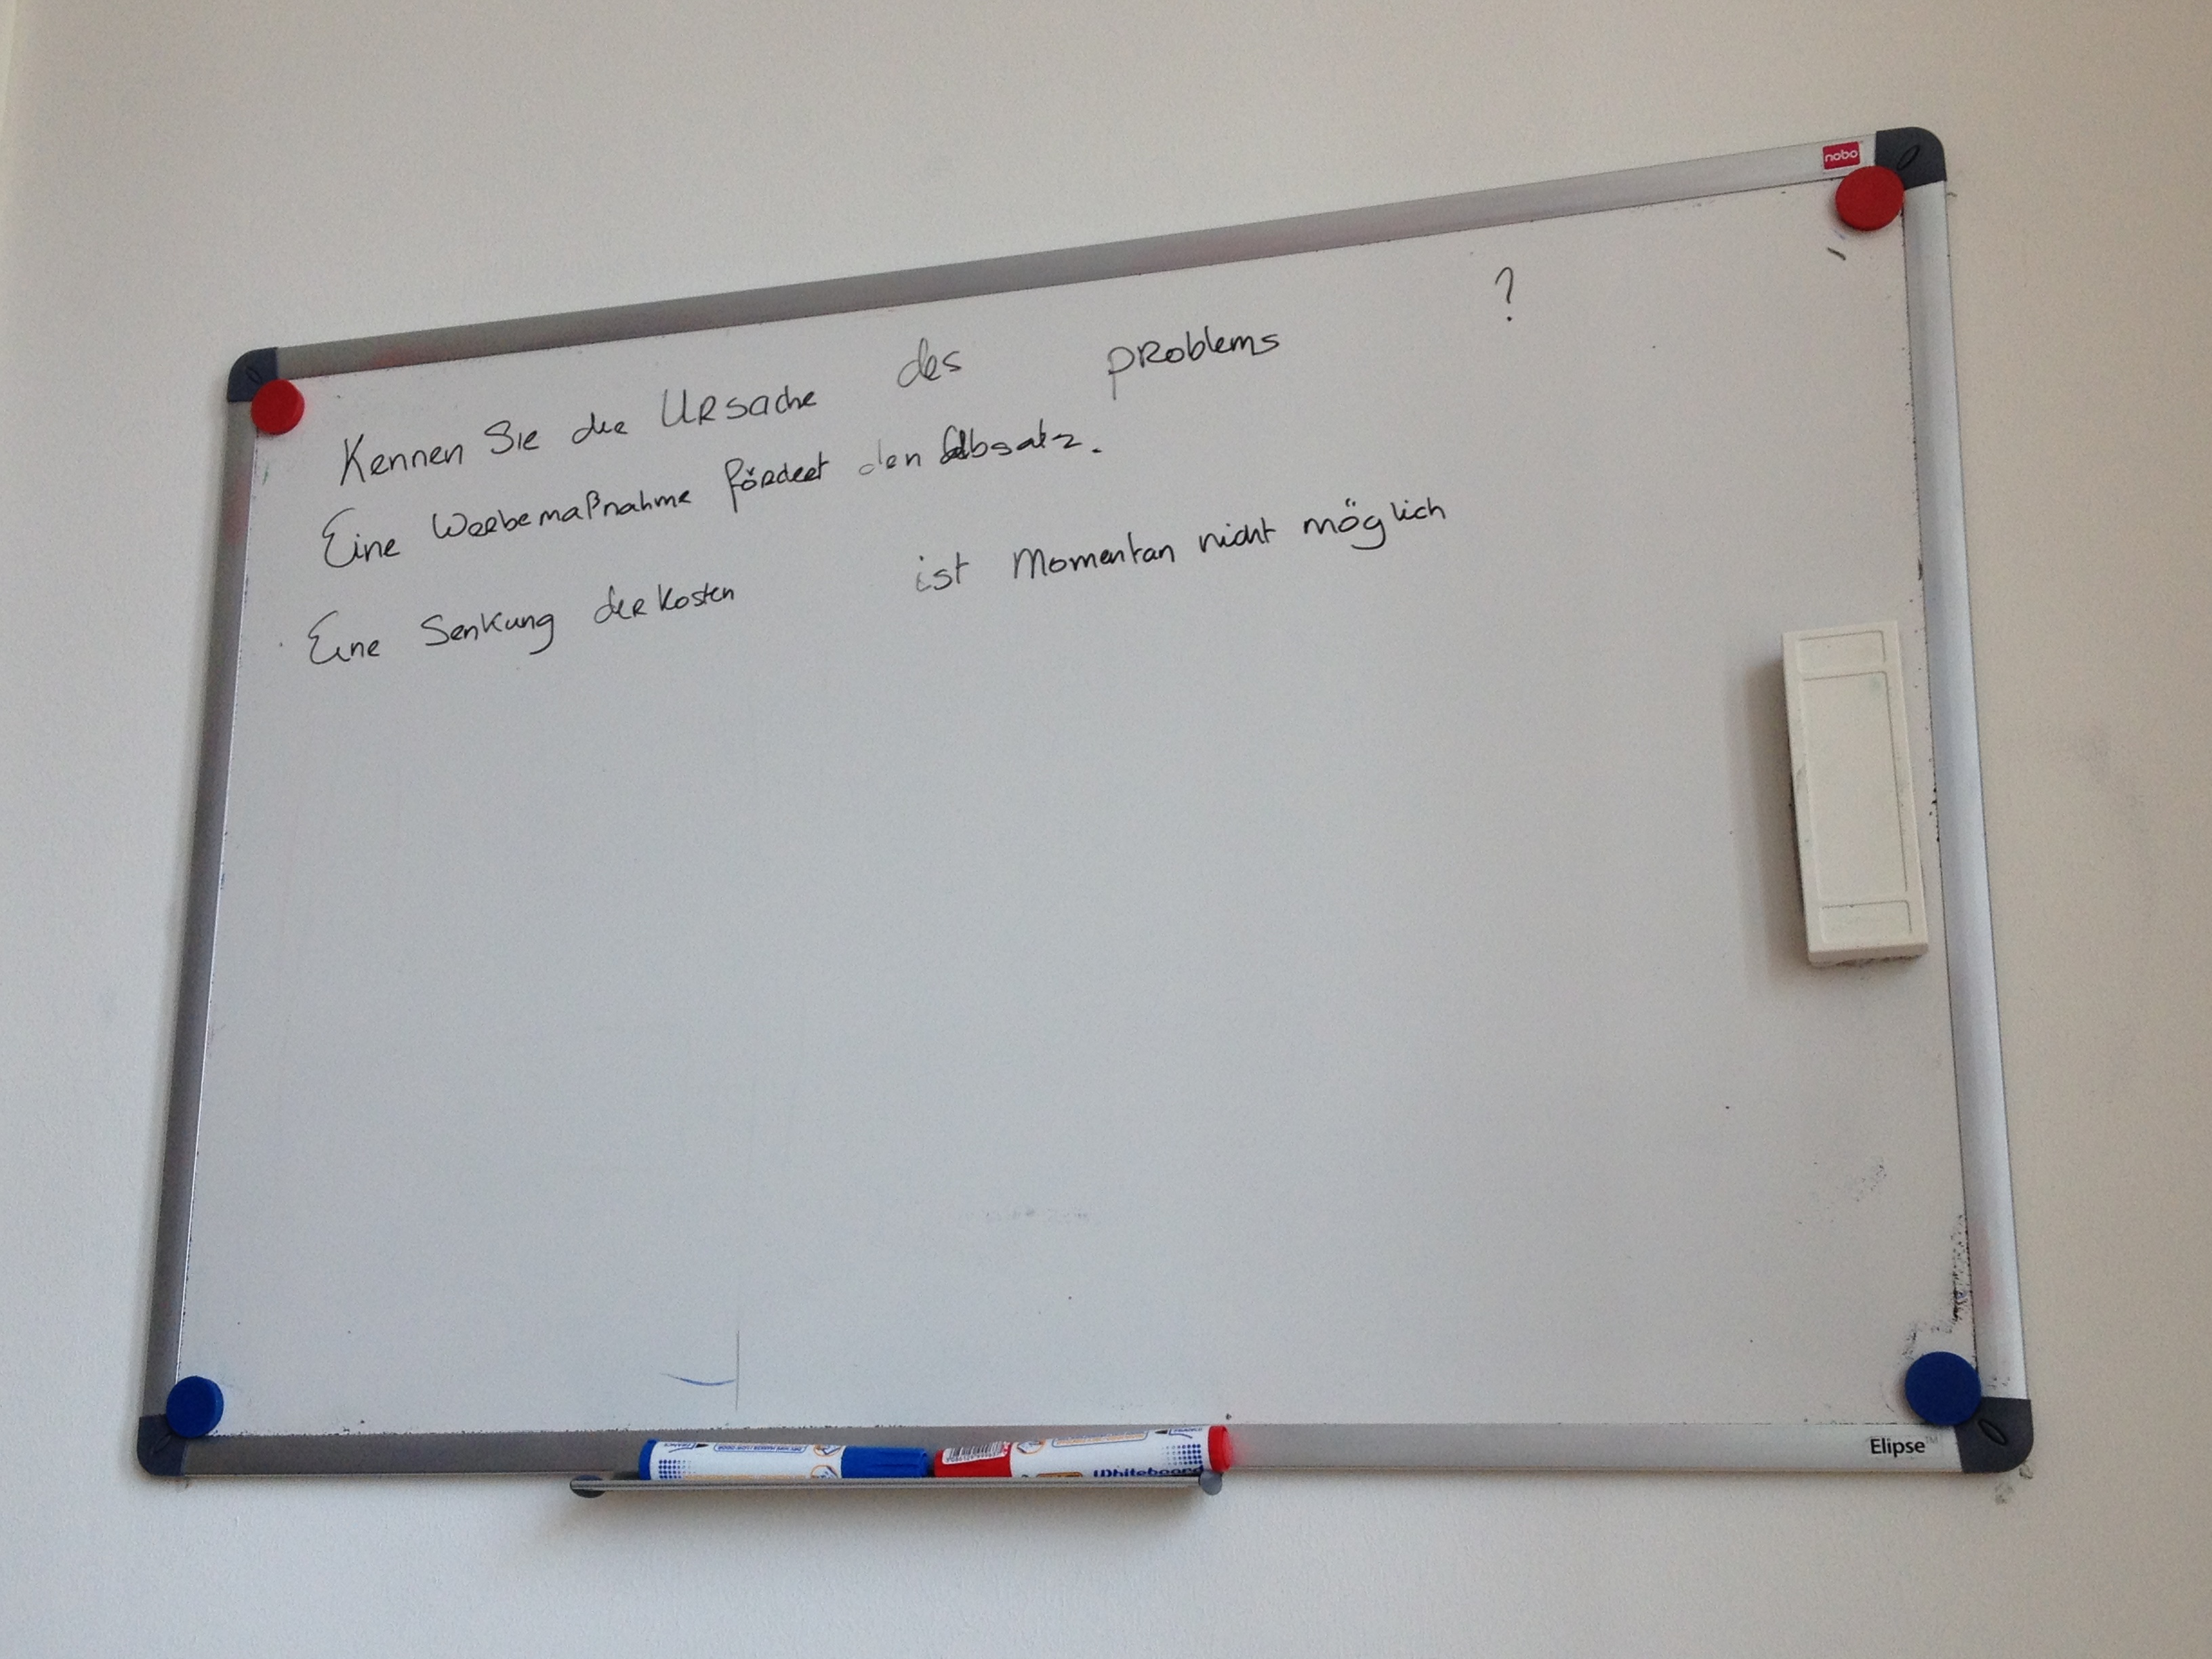 nobo
Kennen Sie die Ursache des problems ?
Eine Werbemaßnahme fördert den Absatz.
Eine Senkung der Kosten ist Momentan nicht möglich
Whiteboard
Elipse™